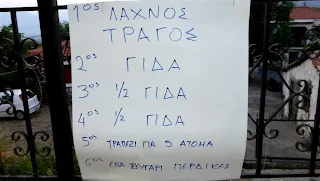 1ος ΛΑΧΝΟΣ
ΤΡΑΓΟΣ
2ος ΓΙΔΑ
3ος 1/2 ΓΙΔΑ
4ος 1/2 ΓΙΔΑ
5ος ΤΡΑΠΕΖΙ ΓΙΑ 5 ΑΤΟΜΑ
6ος ΕΝΑ ΖΕΥΓΑΡΙ ΠΕΡΔΙΚΕΣ